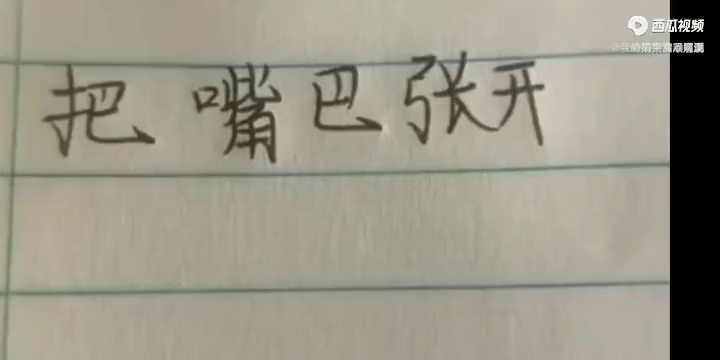 西瓜视频
把嘴巴张开